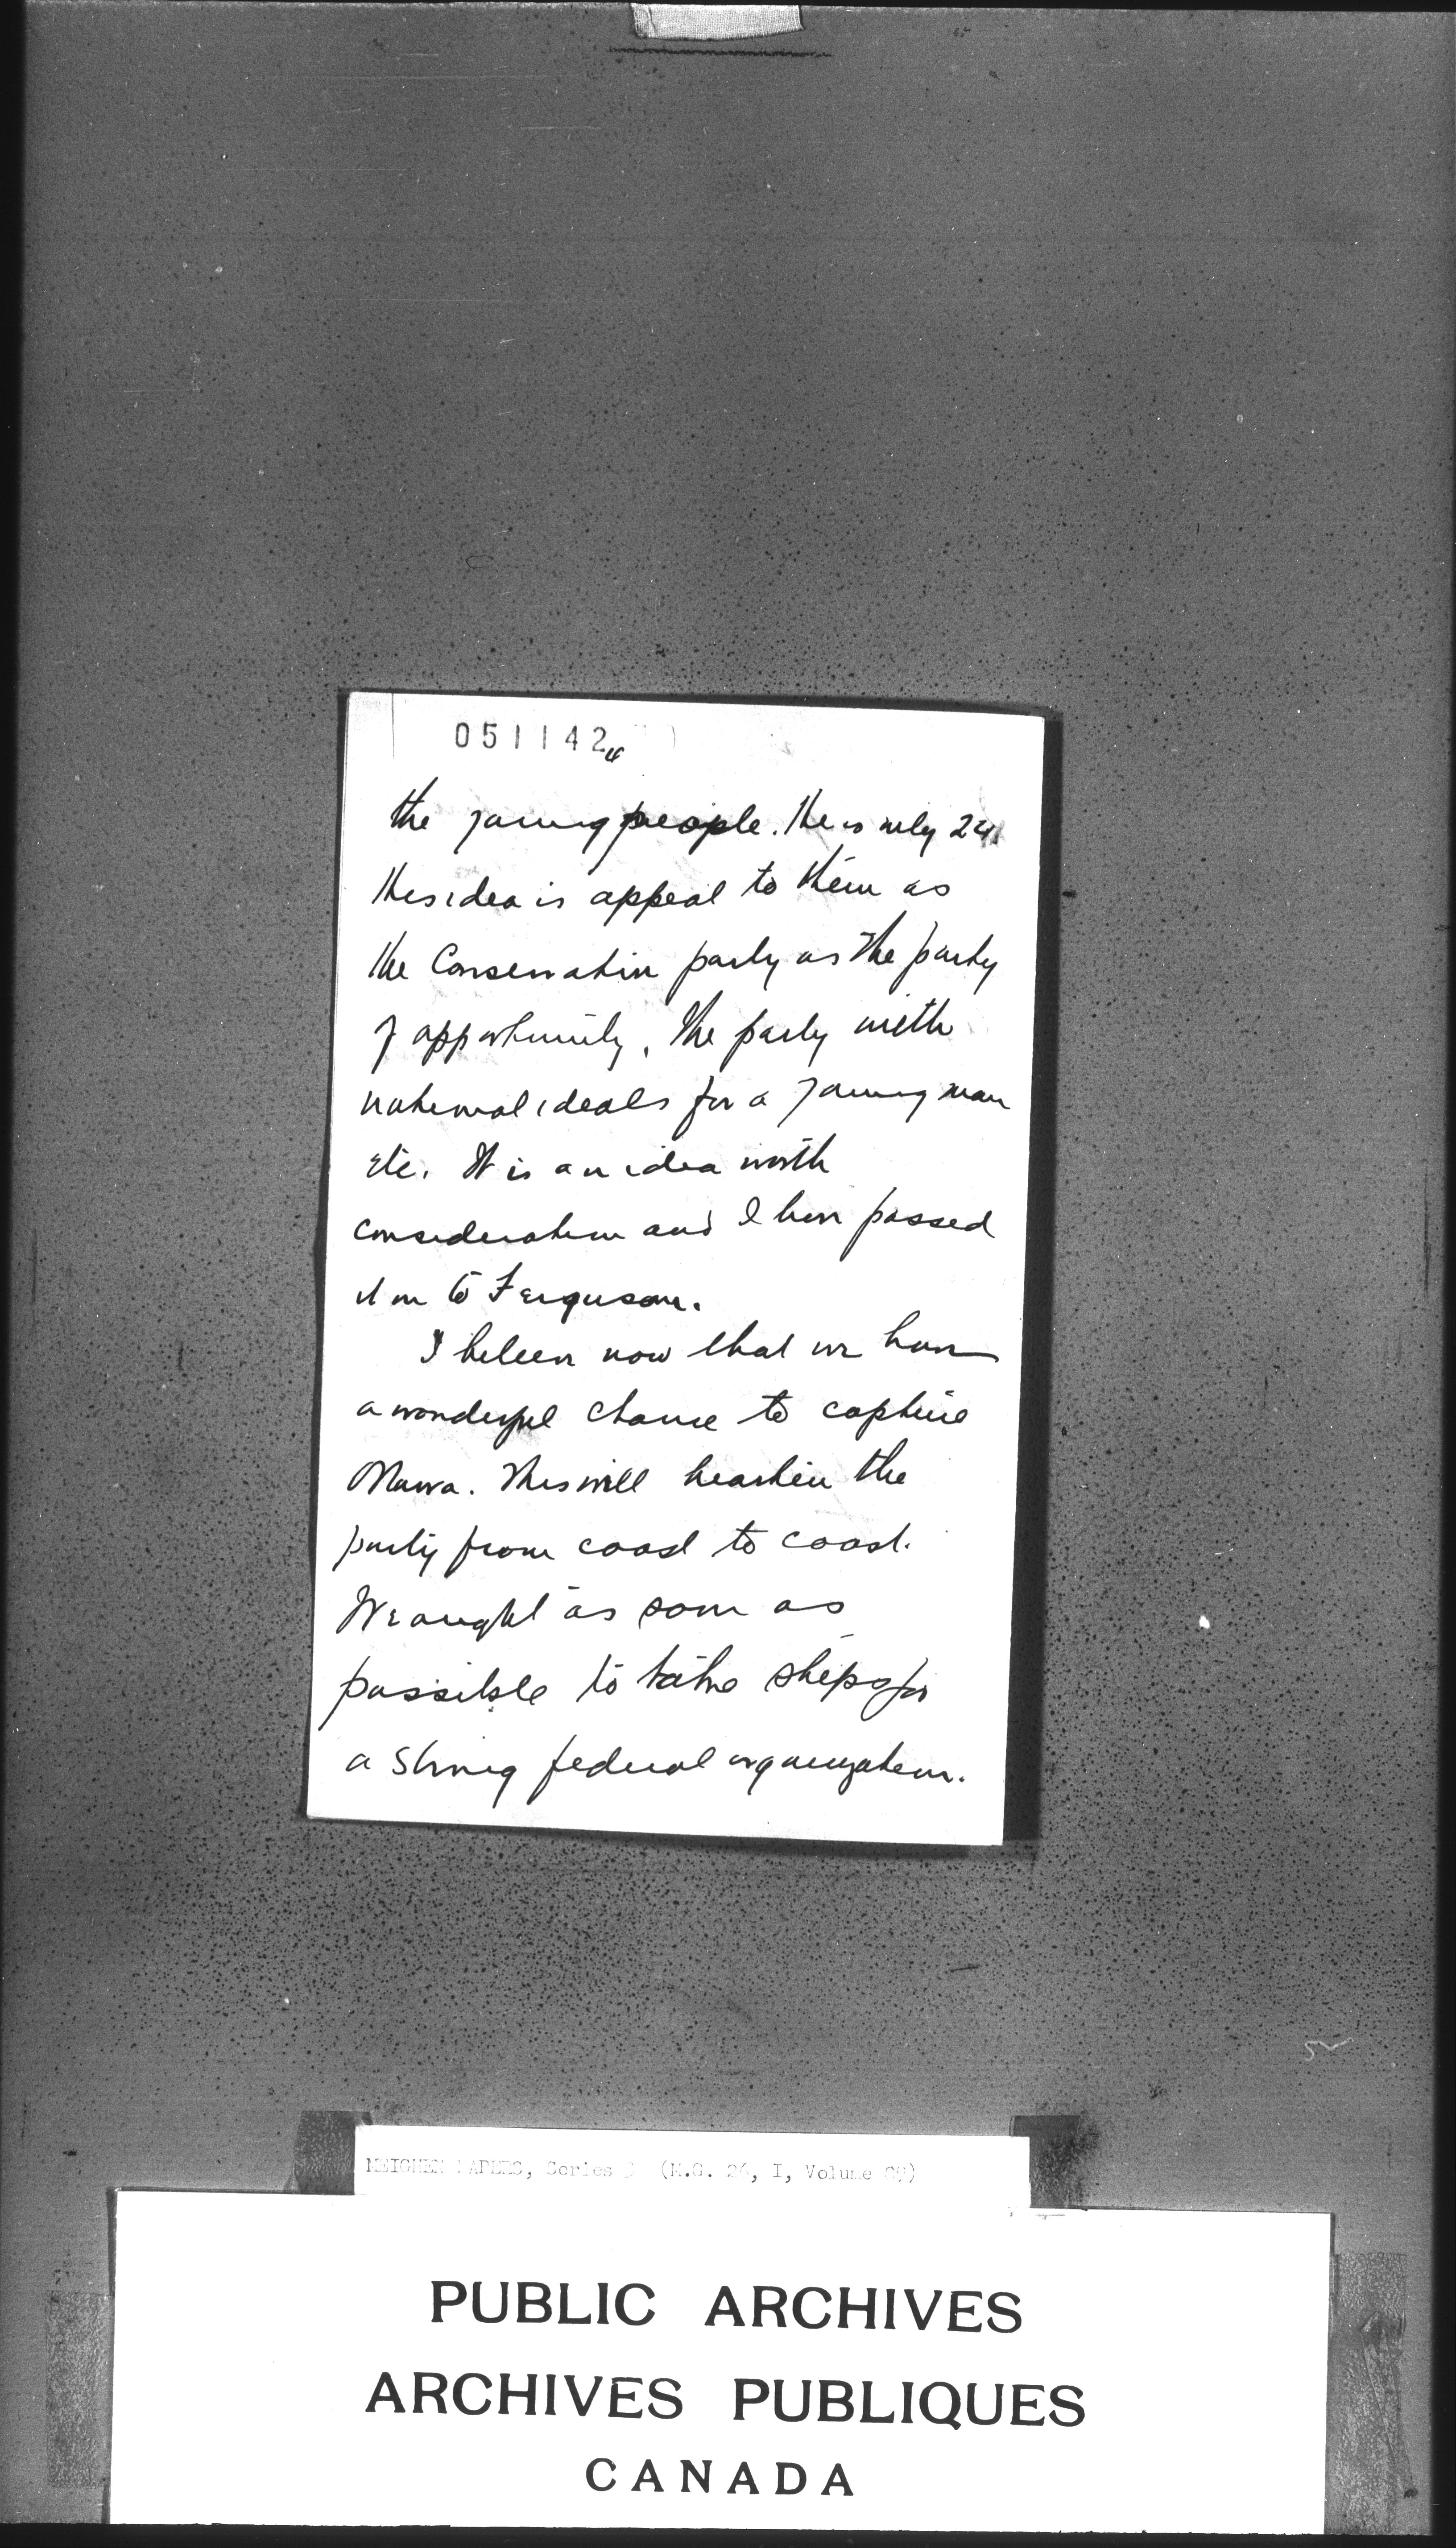 051142
4
the young people. He is only 24.
His idea is appeal to them as
the Conservative party as the party
of opportunity, the party with
national ideals for a young man
etc. It is an idea worth
consideration and I have passed
it on to Ferguson.
I believe now that we have
a wonderful chance to capture
Ottawa. This will hearten the
party from coast to coast.
We ought as soon as
possible to take steps for
a strong federal organization.
MEIGHEN PAPERS, Series 3 (M.G. 26, I, Volume
PUBLIC ARCHIVES
ARCHIVES PUBLIQUES
CANADA